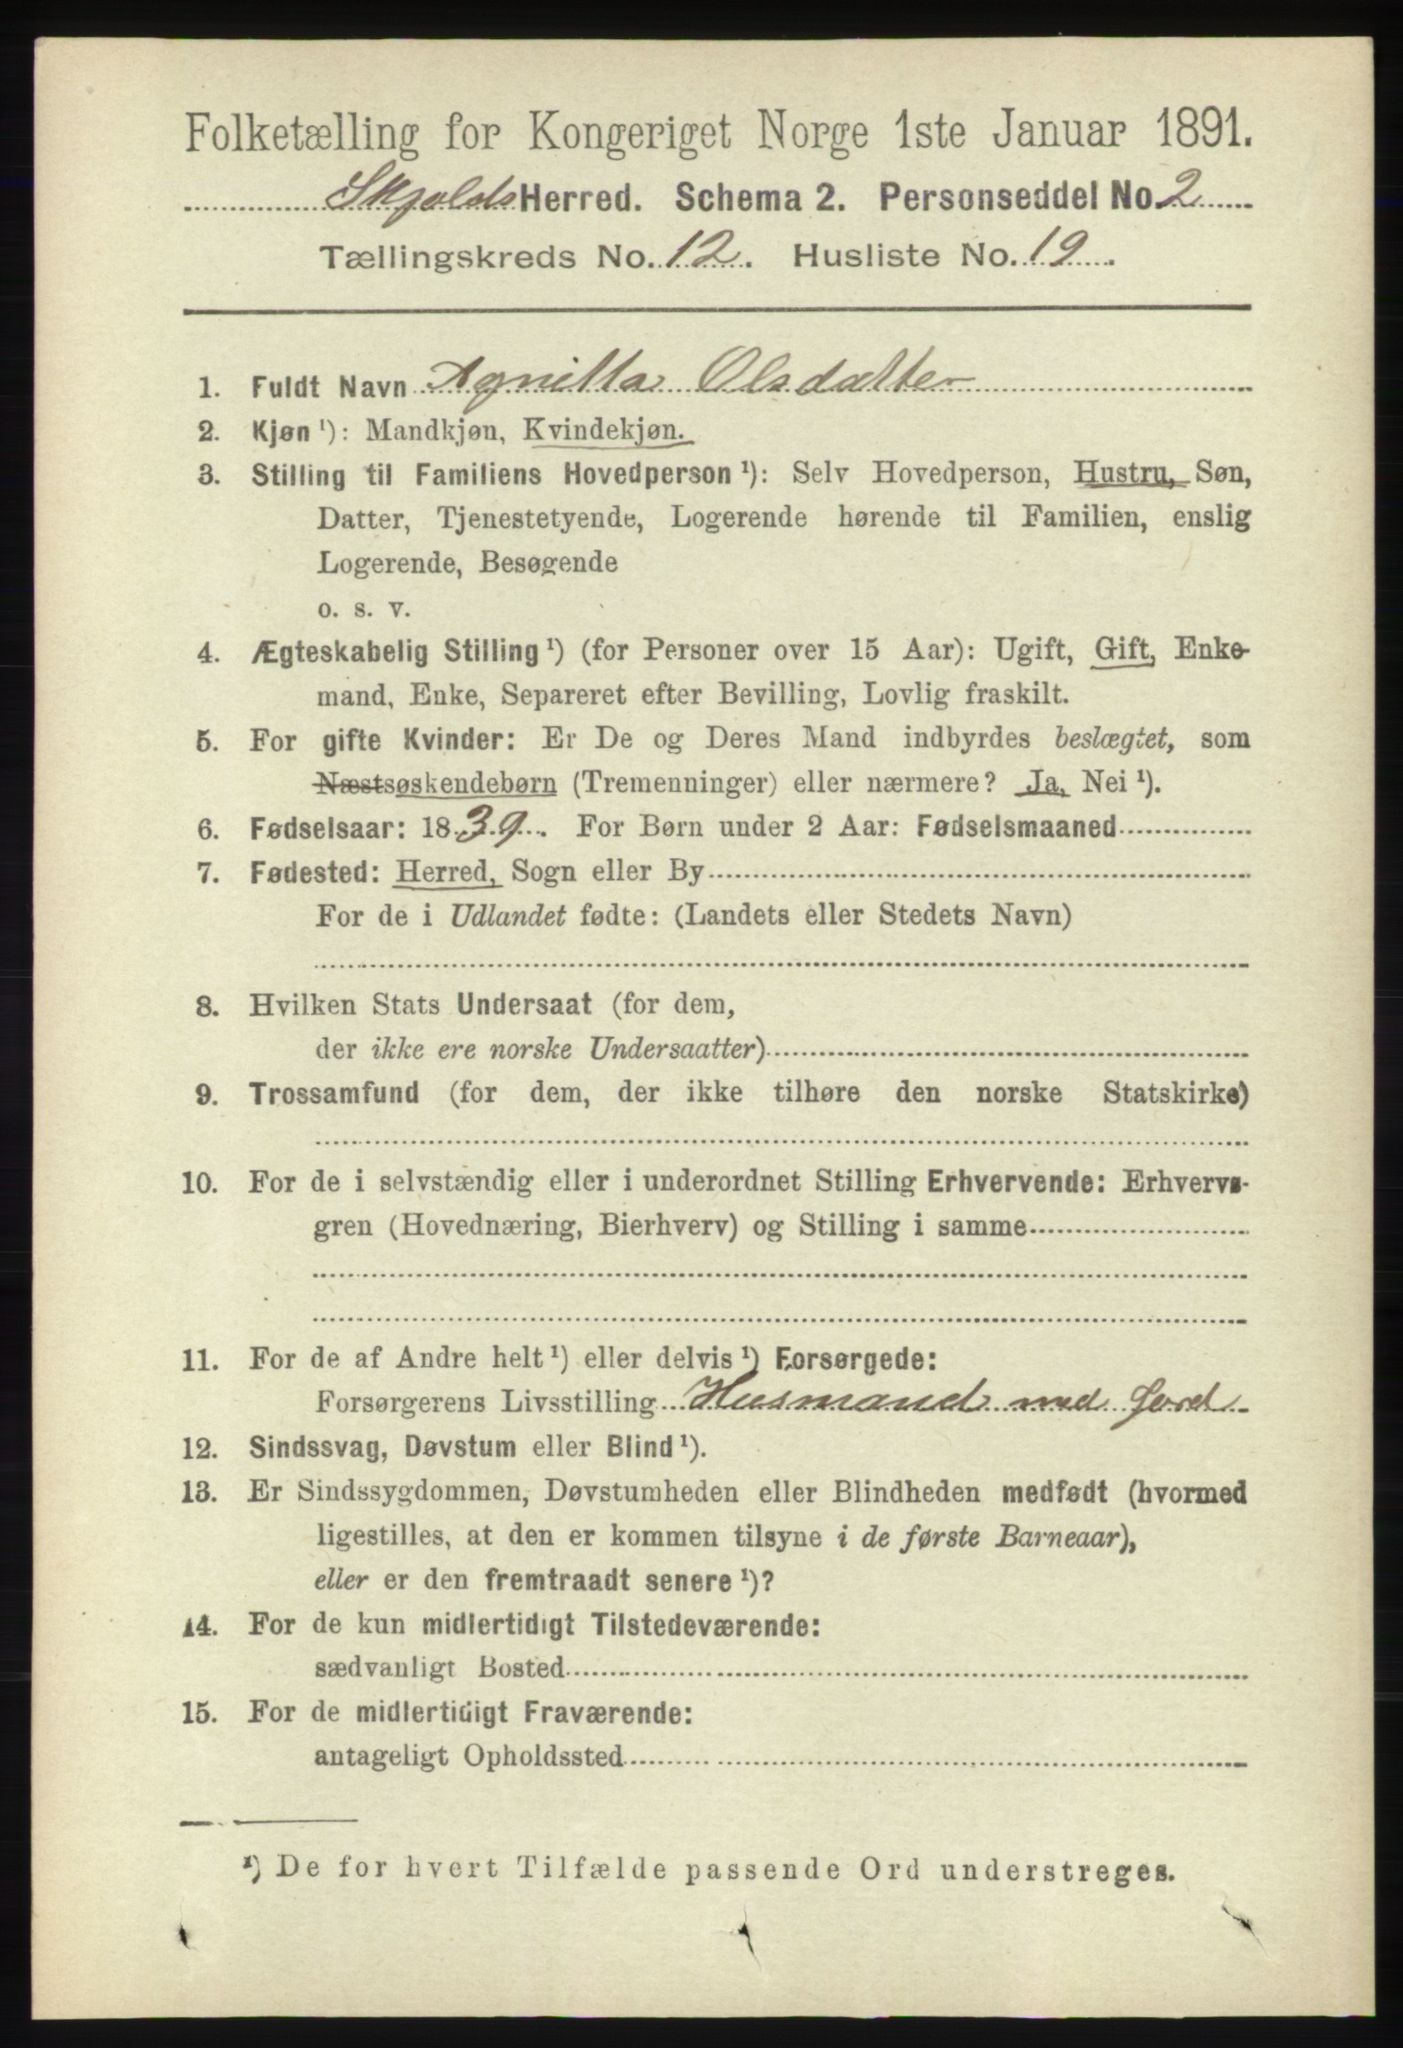 Folketælling for Kongeriget Norge 1ste Januar 1891.
Skjolds Herred. Schema 2. Personseddel No. 2
Tællingskreds No. 12. Husliste No. 19.
1. Fuldt Navn Agnitta Olsdatter
2. Kjøn ¹): Mandkjøn, Kvindekjøn.
3. Stilling til Familiens Hovedperson ¹): Selv Hovedperson, Hustru, Søn,
Datter, Tjenestetyende, Logerende hørende til Familien, enslig
Logerende, Besøgende
o. s. v.
4. Ægteskabelig Stilling ¹) (for Personer over 15 Aar): Ugift, Gift, Enke-
mand, Enke, Separeret efter Bevilling, Lovlig fraskilt.
5. For gifte Kvinder: Er De og Deres Mand indbyrdes beslægtet, som
Næstsøskendebørn (Tremenninger) eller nærmere? Ja, Nei ¹).
6. Fødselsaar: 1839. For Børn under 2 Aar: Fødselsmaaned
7. Fødested: Herred, Sogn eller By
For de i Udlandet fødte: (Landets eller Stedets Navn)
8. Hvilken Stats Undersaat (for dem,
der ikke ere norske Undersaatter)
9. Trossamfund (for dem, der ikke tilhøre den norske Statskirke)
10. For de i selvstændig eller i underordnet Stilling Erhvervende: Erhvervs-
gren (Hovednæring, Bierhverv) og Stilling i samme
11. For de af Andre helt ¹) eller delvis ¹) Forsørgede:
Forsørgerens Livsstilling Husmand med Jord
12. Sindssvag, Døvstum eller Blind ¹).
13. Er Sindssygdommen, Døvstumheden eller Blindheden medfødt (hvormed
ligestilles, at den er kommen tilsyne i de første Barneaar),
eller er den fremtraadt senere ¹)?
14. For de kun midlertidigt Tilstedeværende:
sædvanligt Bosted
15. For de midlertidigt Fraværende:
antageligt Opholdssted
¹) De for hvert Tilfælde passende Ord understreges.